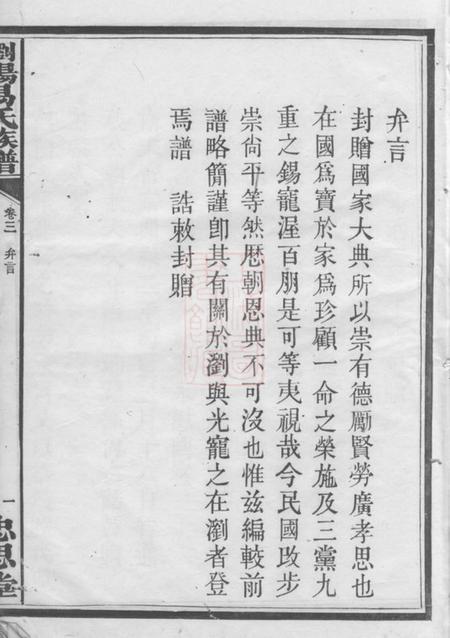 弁言
封贈國家大典所以崇有德勵賢勞廣孝思也
在國爲寶於家爲珍顧一命之榮施及三黨九
重之錫寵渥百朋是可等夷視哉今民國改步
崇尙平等然歷朝恩典不可沒也惟兹編較前
譜略簡謹卽其有關於瀏與光寵之在瀏者登
焉譜　誥敕封贈
瀏陽易氏族譜
卷三　弁言
一
忠思堂